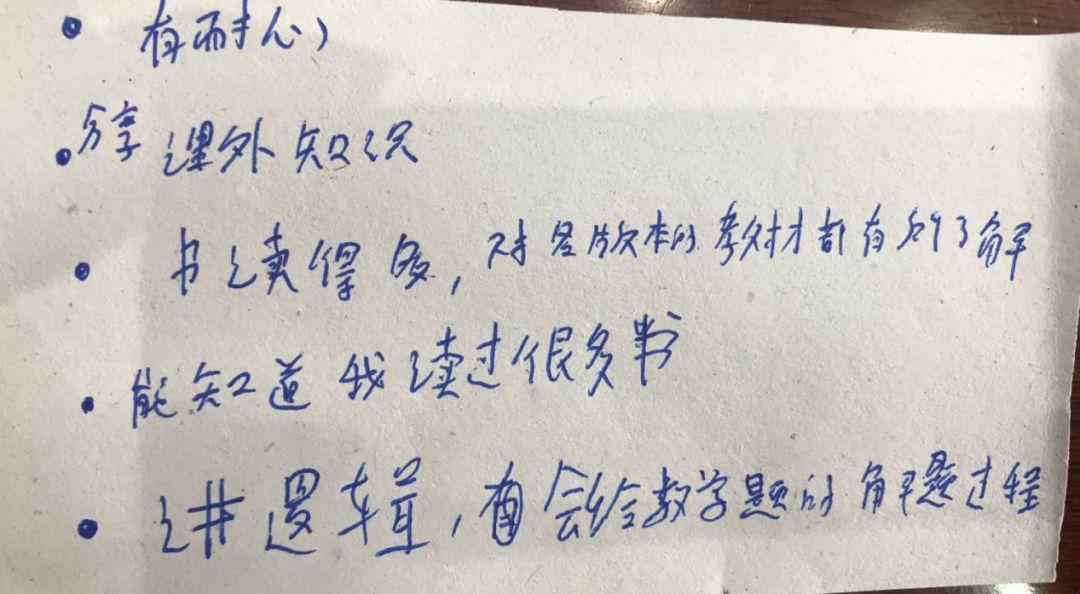 • 有耐心
• 分享课外知识
• 书读得多,对各版本的教材都有所了解
• 能知道我读过很多书
• 讲逻辑,会给数学题的解题过程